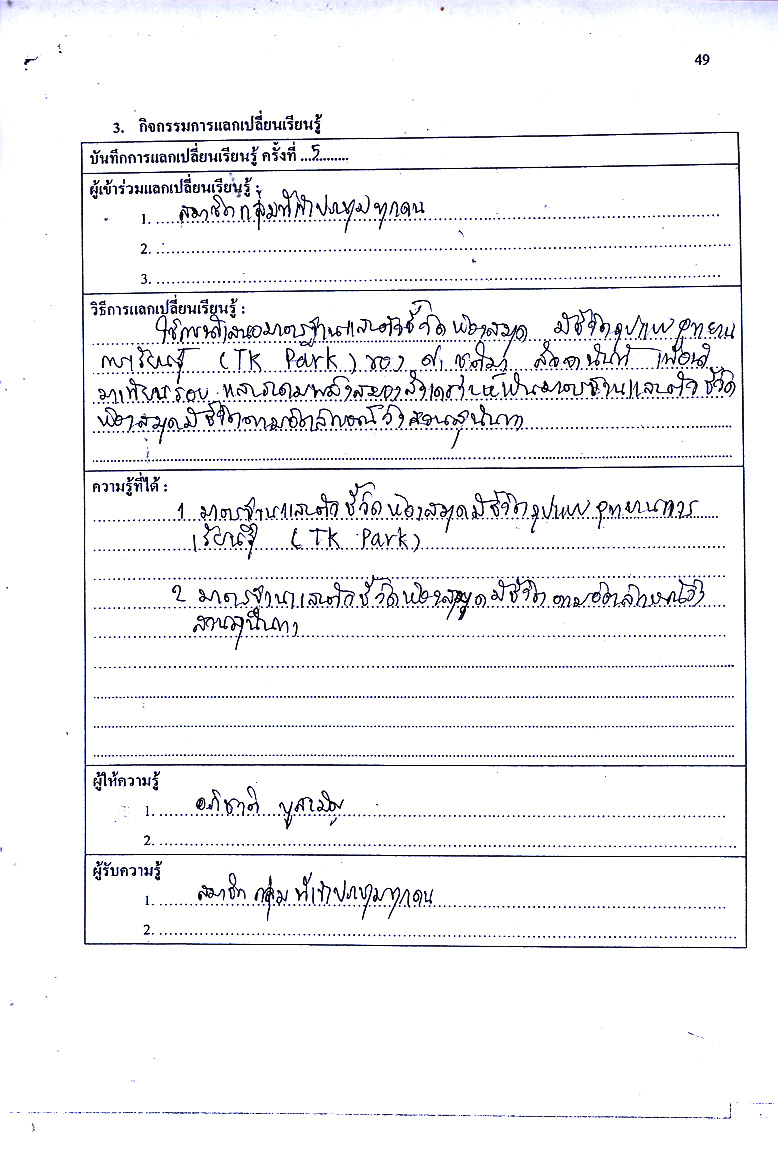 49
3. กิจกรรมการแลกเปลี่ยนเรียนรู้
บันทึกการแลกเปลี่ยนเรียนรู้ ครั้งที่ ...5........
ผู้เข้าร่วมแลกเปลี่ยนเรียนรู้ :
1. สมาชิกกลุ่มที่เข้าประชุมทุกคน
2.
3.
วิธีการแลกเปลี่ยนเรียนรู้ :
ใช้การนำเสนอมาตรฐานและตัวชี้วัดห้องสมุด มีชีวิตรูปแบบอุทยาน
การเรียนรู้ (TK Park) ของ สัจจานันท์ เพื่อนำ
มาเทียบรอบ และระดมพลังสมองสังเคราะห์เป็นมาตรฐานและตัวชี้วัด
ห้องสมุดมีชีวิตตามอัตลักษณ์วังสวนสุนันทา
ความรู้ที่ได้ :
1 มาตรฐานและตัวชี้วัดห้องสมุดมีชีวิตรูปแบบอุทยานการ
เรียนรู้ (TK Park)
2 มาตรฐานและตัวชี้วัดห้องสมุดมีชีวิตตามอัตลักษณ์วัง
สวนสุนันทา
ผู้ให้ความรู้
1. อภิชาติ
2.
ผู้รับความรู้
1. สมาชิกกลุ่มที่เข้าประชุมทุกคน
2.